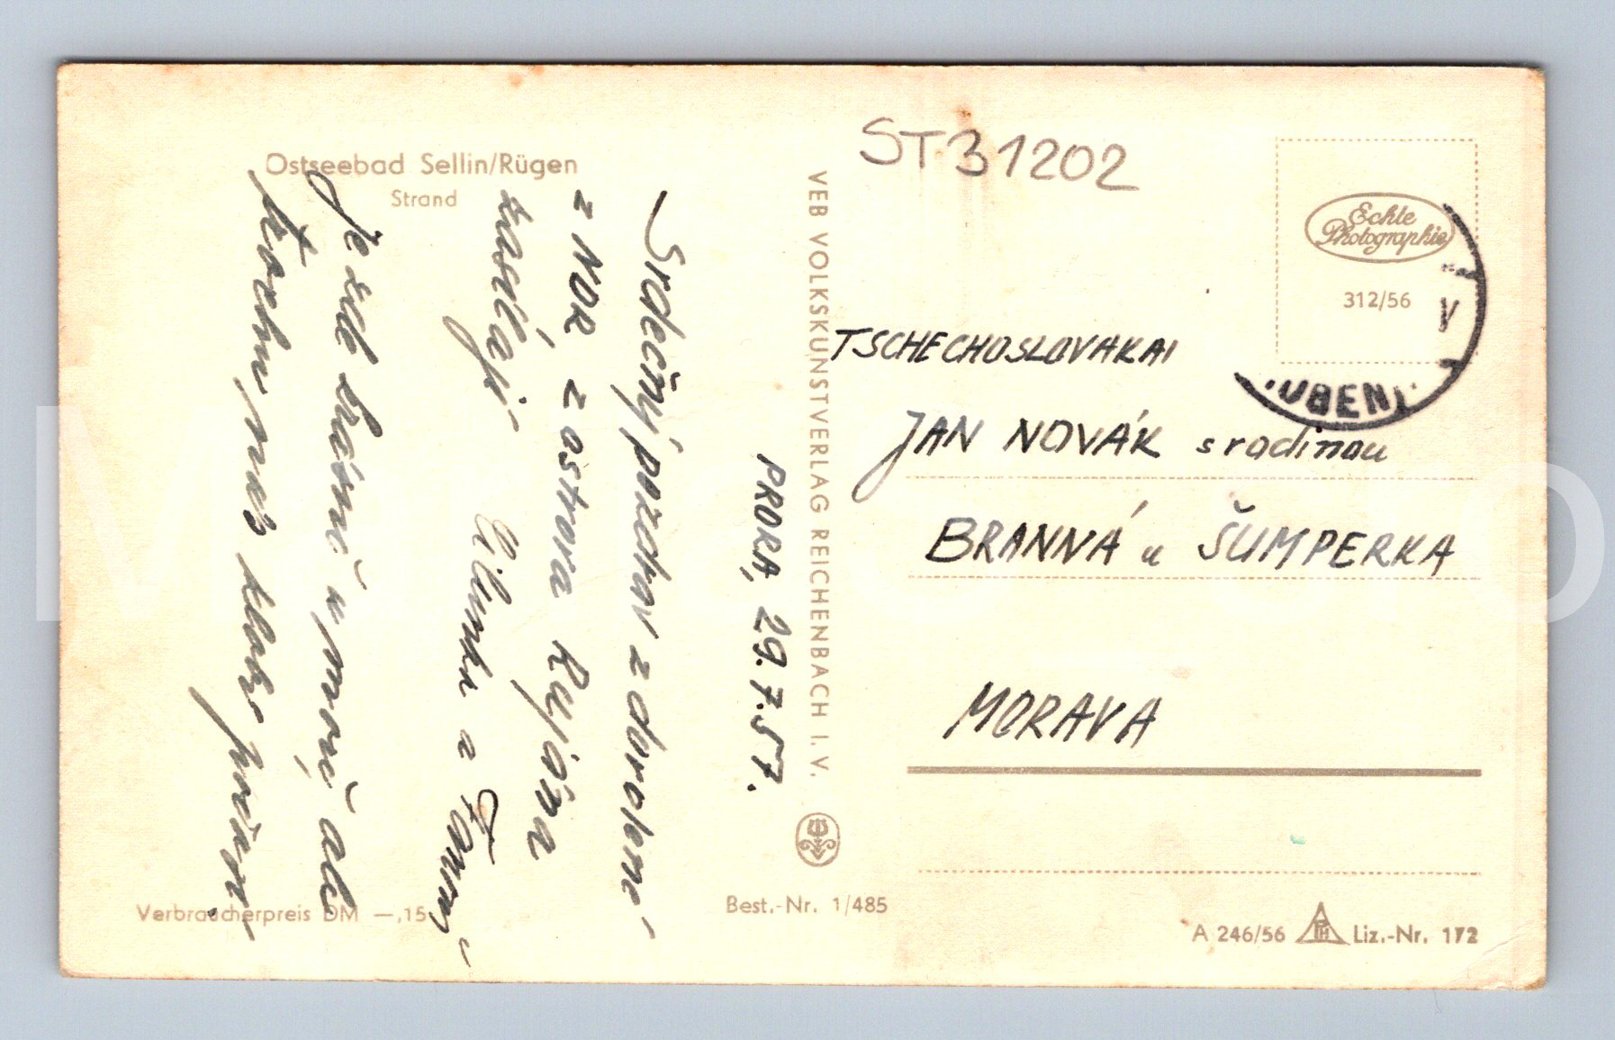 Ostseebad Sellin/Rügen
Strand
PRORA, 29.7.57.
Srdečný pozdrav z dovolené
z NDR, z ostrova Rujána
zasílají
a
Je zde krásně u moře, ale
trochu nás
Verbraucherpreis DM —,15
Best.-Nr. 1/485
VEB VOLKSKUNSTVERLAG REICHENBACH I. V.
ST31202
Echte
Photographie
312/56
V
TSCHECHOSLOVAKAI
JAN NOVÁK s rodinou
BRANNÁ u ŠUMPERKA
MORAVA
A 246/56 Liz.-Nr. 172